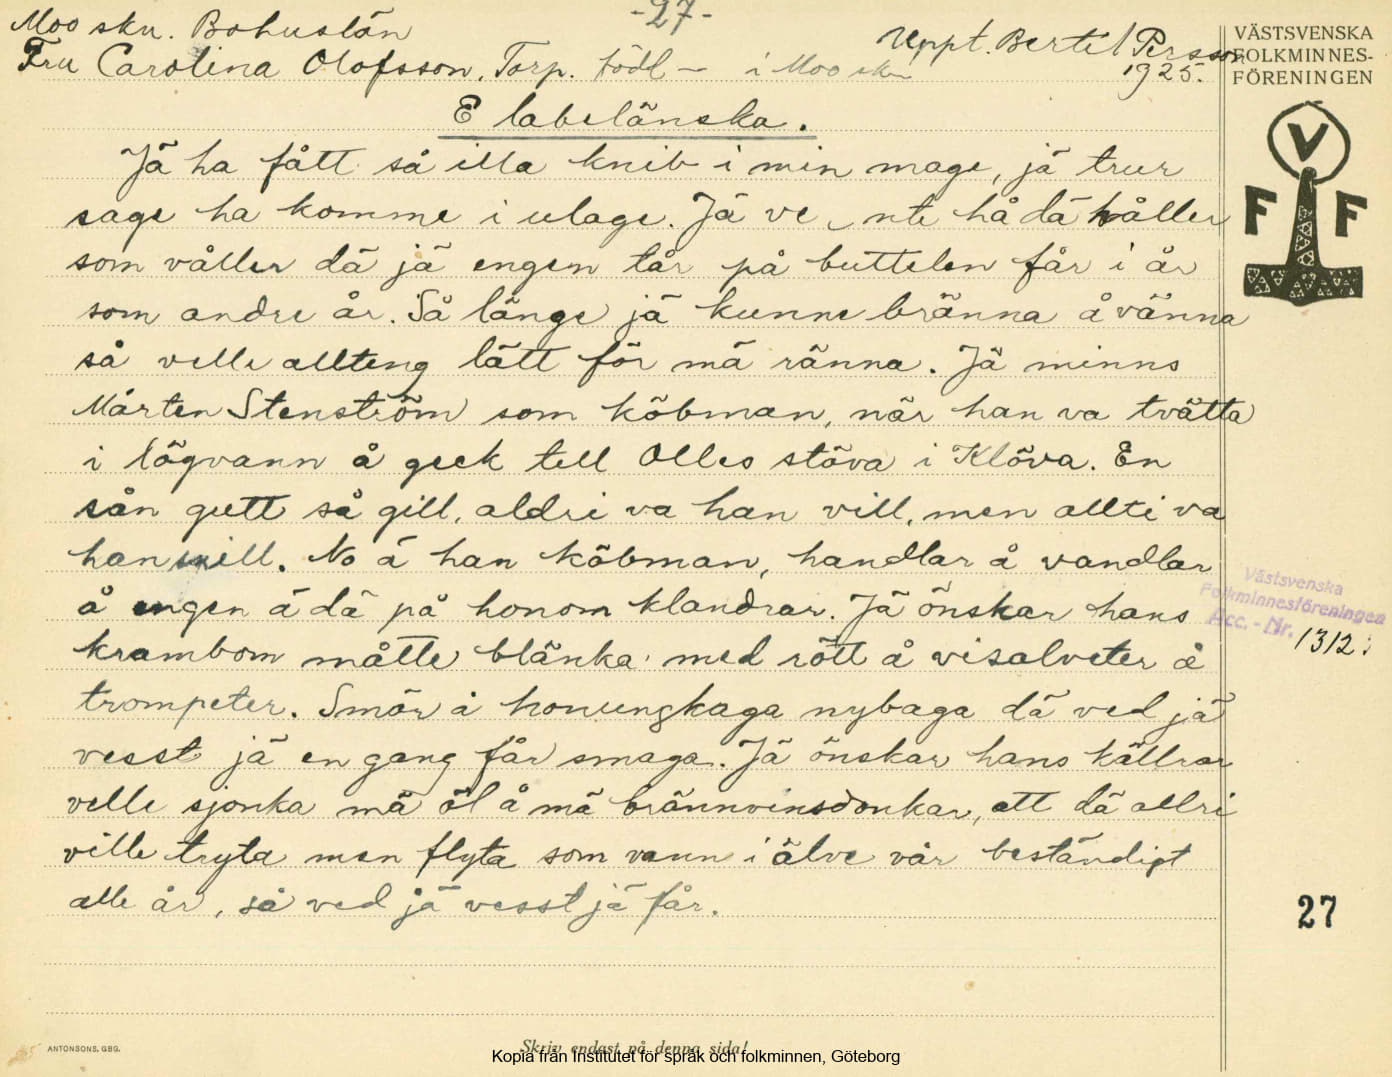 -27-
Moo skn. Bohuslän
Uppt. Bertil Persson
Fru Carolina Olofsson, Torp. född — i Moo skn
1925.
VÄSTSVENSKA
FOLKMINNES-
FÖRENINGEN
V
F F
E labelänska.
Jä ha fått så illa knib i min mage, jä trur
sage ha komme i ulage. Jä ve nte hå dä håller
som våller dä jä engen tår på buttelen får i år
som andre år. Så länge jä kunne bränna å vänna
så velle allteng lätt för mä ränna. Jä minns
Mårten Stenström som köbman, när han va tvätta
i lögvann å geck tell Olles stöva i Klöva. En
sån gutt så gill, aldri va han vill, men allti va
han snill. No ä han köbman, handlar å vandlar
å engen ä dä på honom klandrar. Jä önskar hans
krambom måtte blänka med rött å visalveter å
trompeter. Smör å honungkaga nybaga dä ved jä
vesst jä en gang får smaga. Jä önskar hans källrar
velle sjonka mä öl å mä brännvinsdonkar, att dä allri
ville tryta men flyta som vann i älve vår beständigt
alle år, så ved jä vesst jä får.
Västsvenska
Folkminnesföreningen
Acc. - Nr. 1312.
27
ANTONSONS, GBG.
Skriv endast på denna sida!
Kopia från Institutet för språk och folkminnen, Göteborg